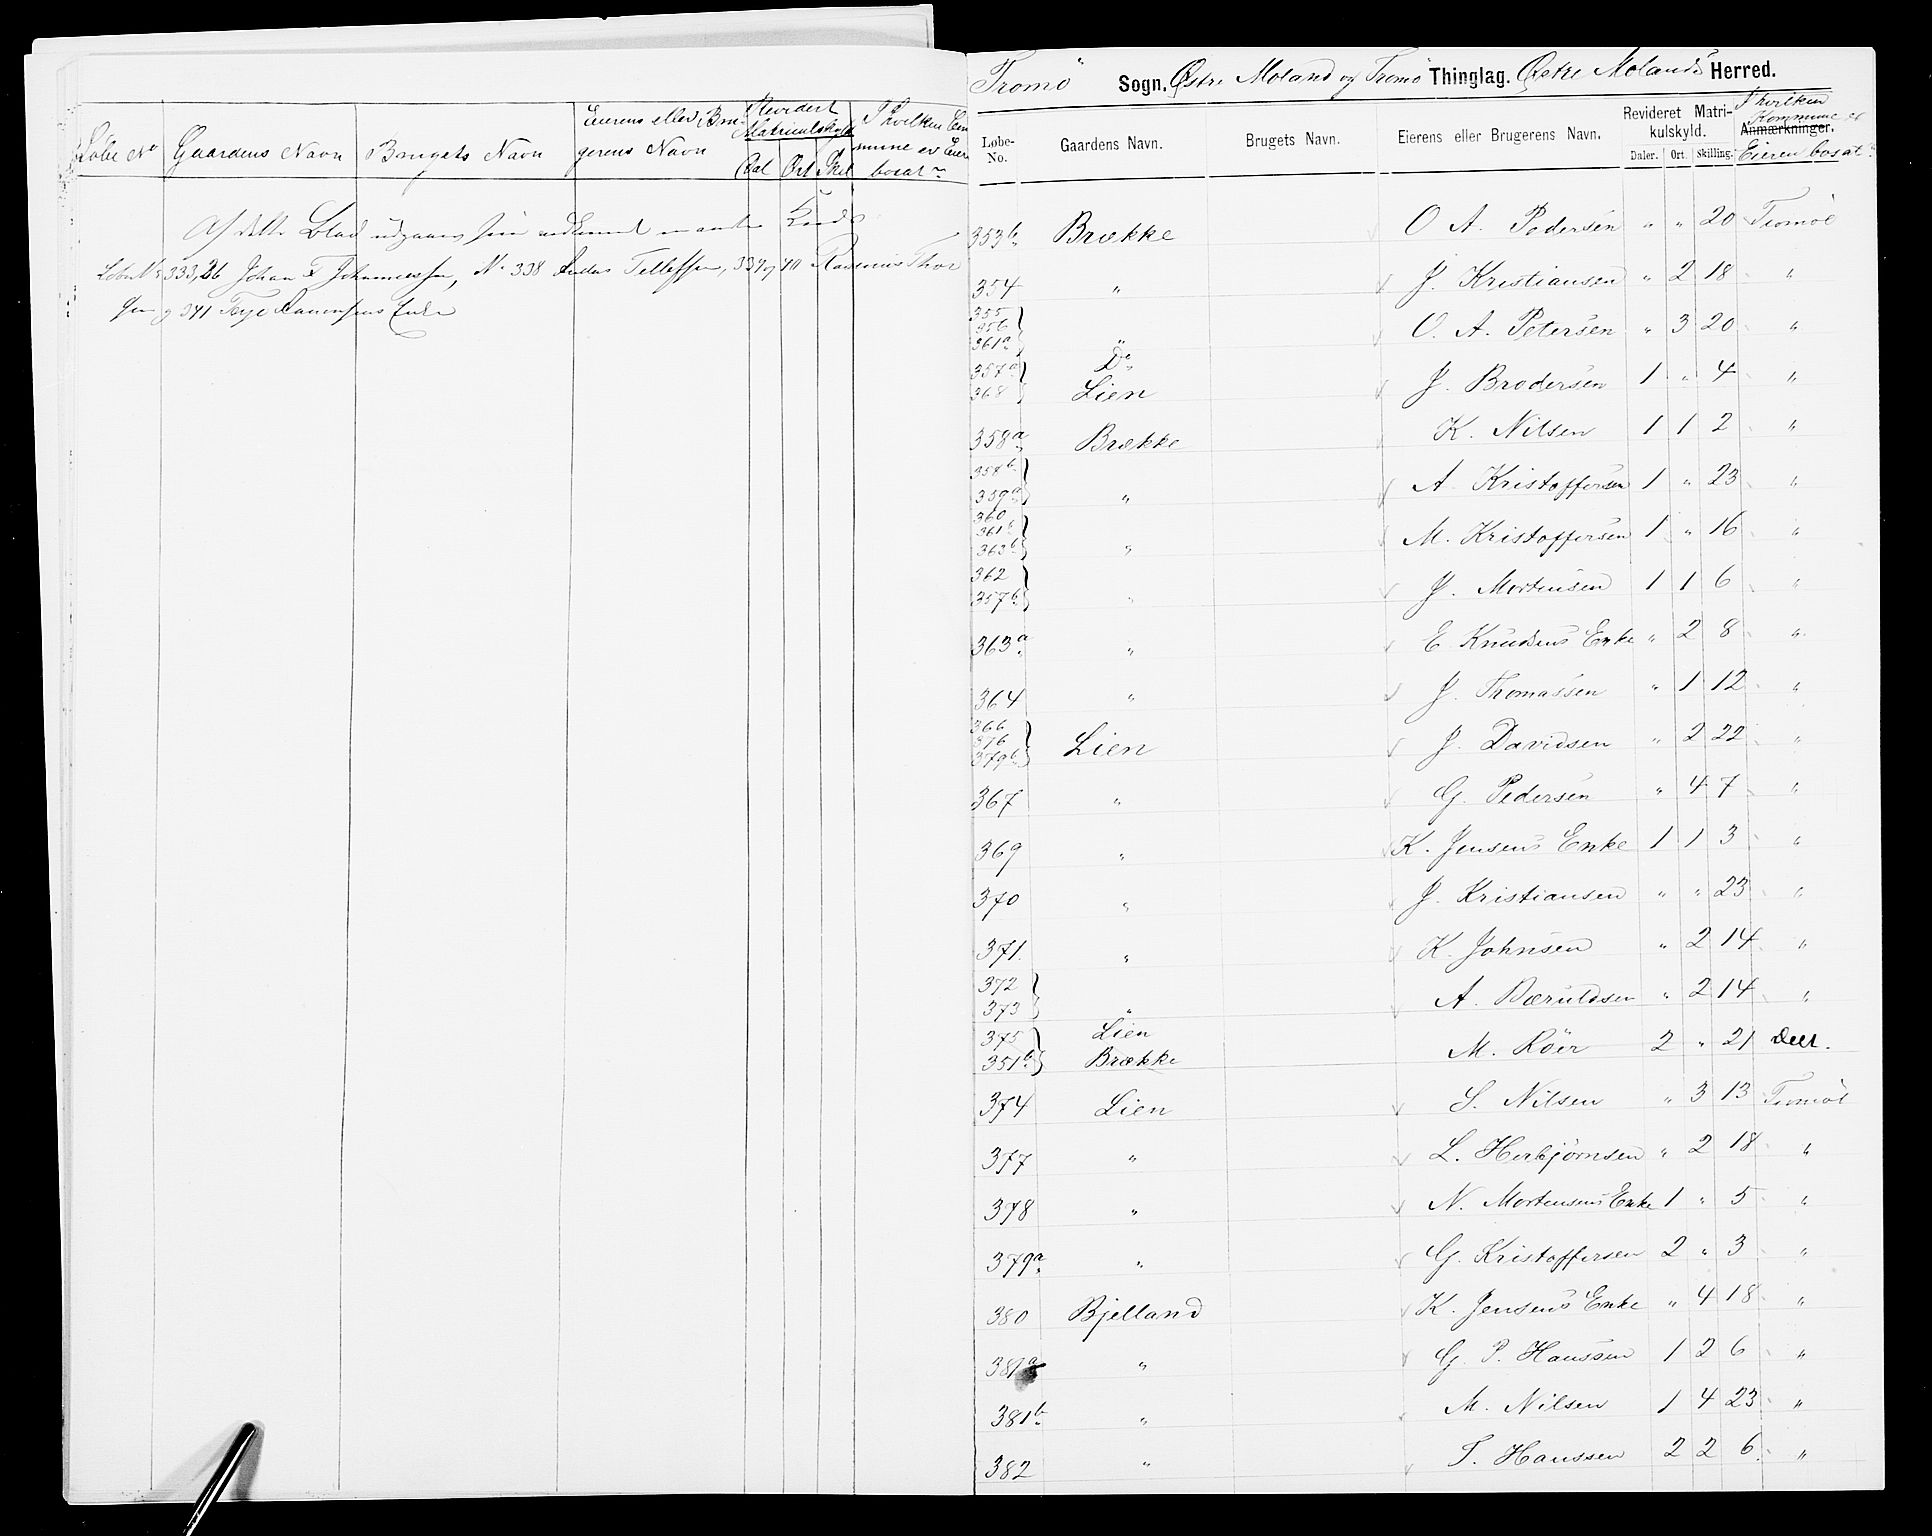 Løbe No Gaardens Navn Brugets Navn Eierens eller Bru-
gerens Navn Revideret
Matriculskyld
Dal Ort Skil I hvilken Kom
mune er Eier
bosat
Af dette Blad udgaar som
Løbe No 333,26 Johan F Johannessen, No 338 Tellefsen, 339 og 40 Rasmus Thor
sen og 341 Terje Enke
Tromö Sogn. Østre Moland og Tromö Thinglag. Østre Molands Herred.
Løbe-No. Gaardens Navn. Brugets Navn. Eierens eller Brugerens Navn. Revideret Matri-
kulskyld.
Daler. Ort. Skilling. Anmærkninger.
I hvilken
Kommune er
Eieren bosat
353b Brække O A. Pedersen " " 20 Tromöe
354 " J. Kristiansen " 2 18 "
355
356
361a " O. A. Petersen " 3 20 "
357a Do
368 Lien J. Brodersen 1 " 4 "
358a Brække K. Nilsen 1 1 2 "
358b
359a " A. Kristoffersen 1 " 23 "
360
361b
363b " M. Kristoffersen 1 " 16 "
362
357b " J. Mortensen 1 1 6 "
363a " E Knudsens Enke " 2 8 "
364 " J. Thomassen " 1 12 "
366
376
379b Lien J. Davidsen " 2 22 "
367 " G. Pedersen " 4 7 "
369 " K. Jensens Enke 1 1 3 "
370 " J. Kristiansen " " 23 "
371. " K. Johnsen " 2 14 "
372
373 " A. Bæruldsen " 2 14 "
375 Lien
351b Brække M. Röer 2 " 21
374 Lien S. Nilsen " 3 13 Tromöe
377 " L. Herbjørnsen " 2 18 "
378 " N. Mortensens Enke 1 " 5 "
379a " G. Kristoffersen 2 " 3 "
380 Bjelland K. Jensens Enke " 4 18 "
381a " G. P. Hanssen 1 2 6 "
381b " M. Nilsen 1 4 23 "
382 " T. Hanssen 2 2 6 "